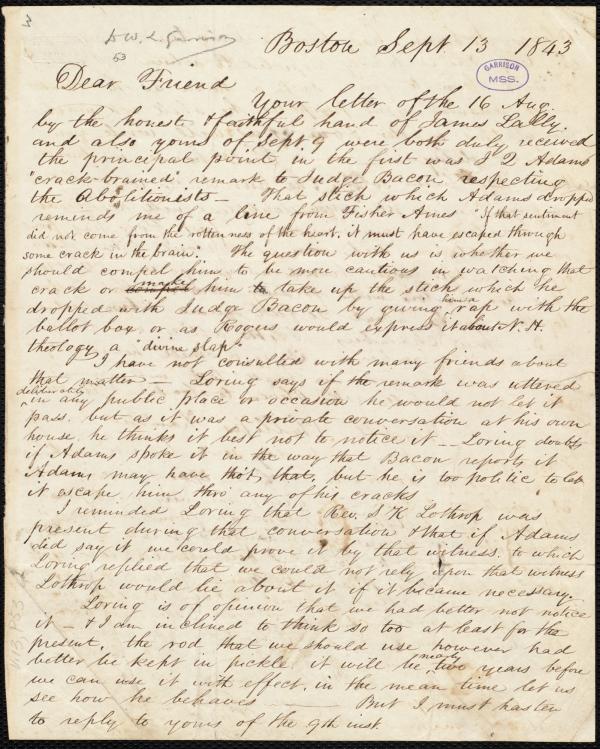 3
W. L. Garrison
53
Boston Sept 13 1843
GARRISON
MSS.
Dear Friend
Your letter of the 16 Aug.
by the honest & faithful hand of James Lally.
and also yours of Sept 9 were both duly received
the principal point in the first was J Q Adams
"crack-brained" remark to Judge Bacon respecting
the Abolitionists — That stick which Adams dropped
reminds me of a line from Fisher Ames "If that sentiment
did not come from the rottenness of the heart, it must have escaped through
some crack in the brain". The question with us is whether we
should compel him to be more cautious in watching that
crack or make him to take up the stick which he
dropped with Judge Bacon by giving him a rap with the
ballot box or as Rogers would express it about N. H.
theology a "divine slap"
I have not consulted with many friends about
that matter — Loring says if the remark was uttered
deliberately in any public place or occasion he would not let it
pass. but as it was a private conversation at his own
house he thinks it best not to notice it — Loring doubts
if Adams spoke it in the way that Bacon reports it
Adams may have tho't that, but he is too politic to let
it escape him thro any of his cracks
I reminded Loring that Rev. S K Lothrop was
present during that conversation & that if Adams
did say it we could prove it by that witness, to which
Loring replied that we could not rely upon that witness
Lothrop would lie about it if it became necessary.
Loring is of opinion that we had better not notice
it — & I am inclined to think so too at least for the
present, the rod that we should use however had
better be kept in pickle it will be nearly two years before
we can use it with effect, in the mean time let us
see how he behaves — But I must hasten
to reply to yours of the 9th inst.